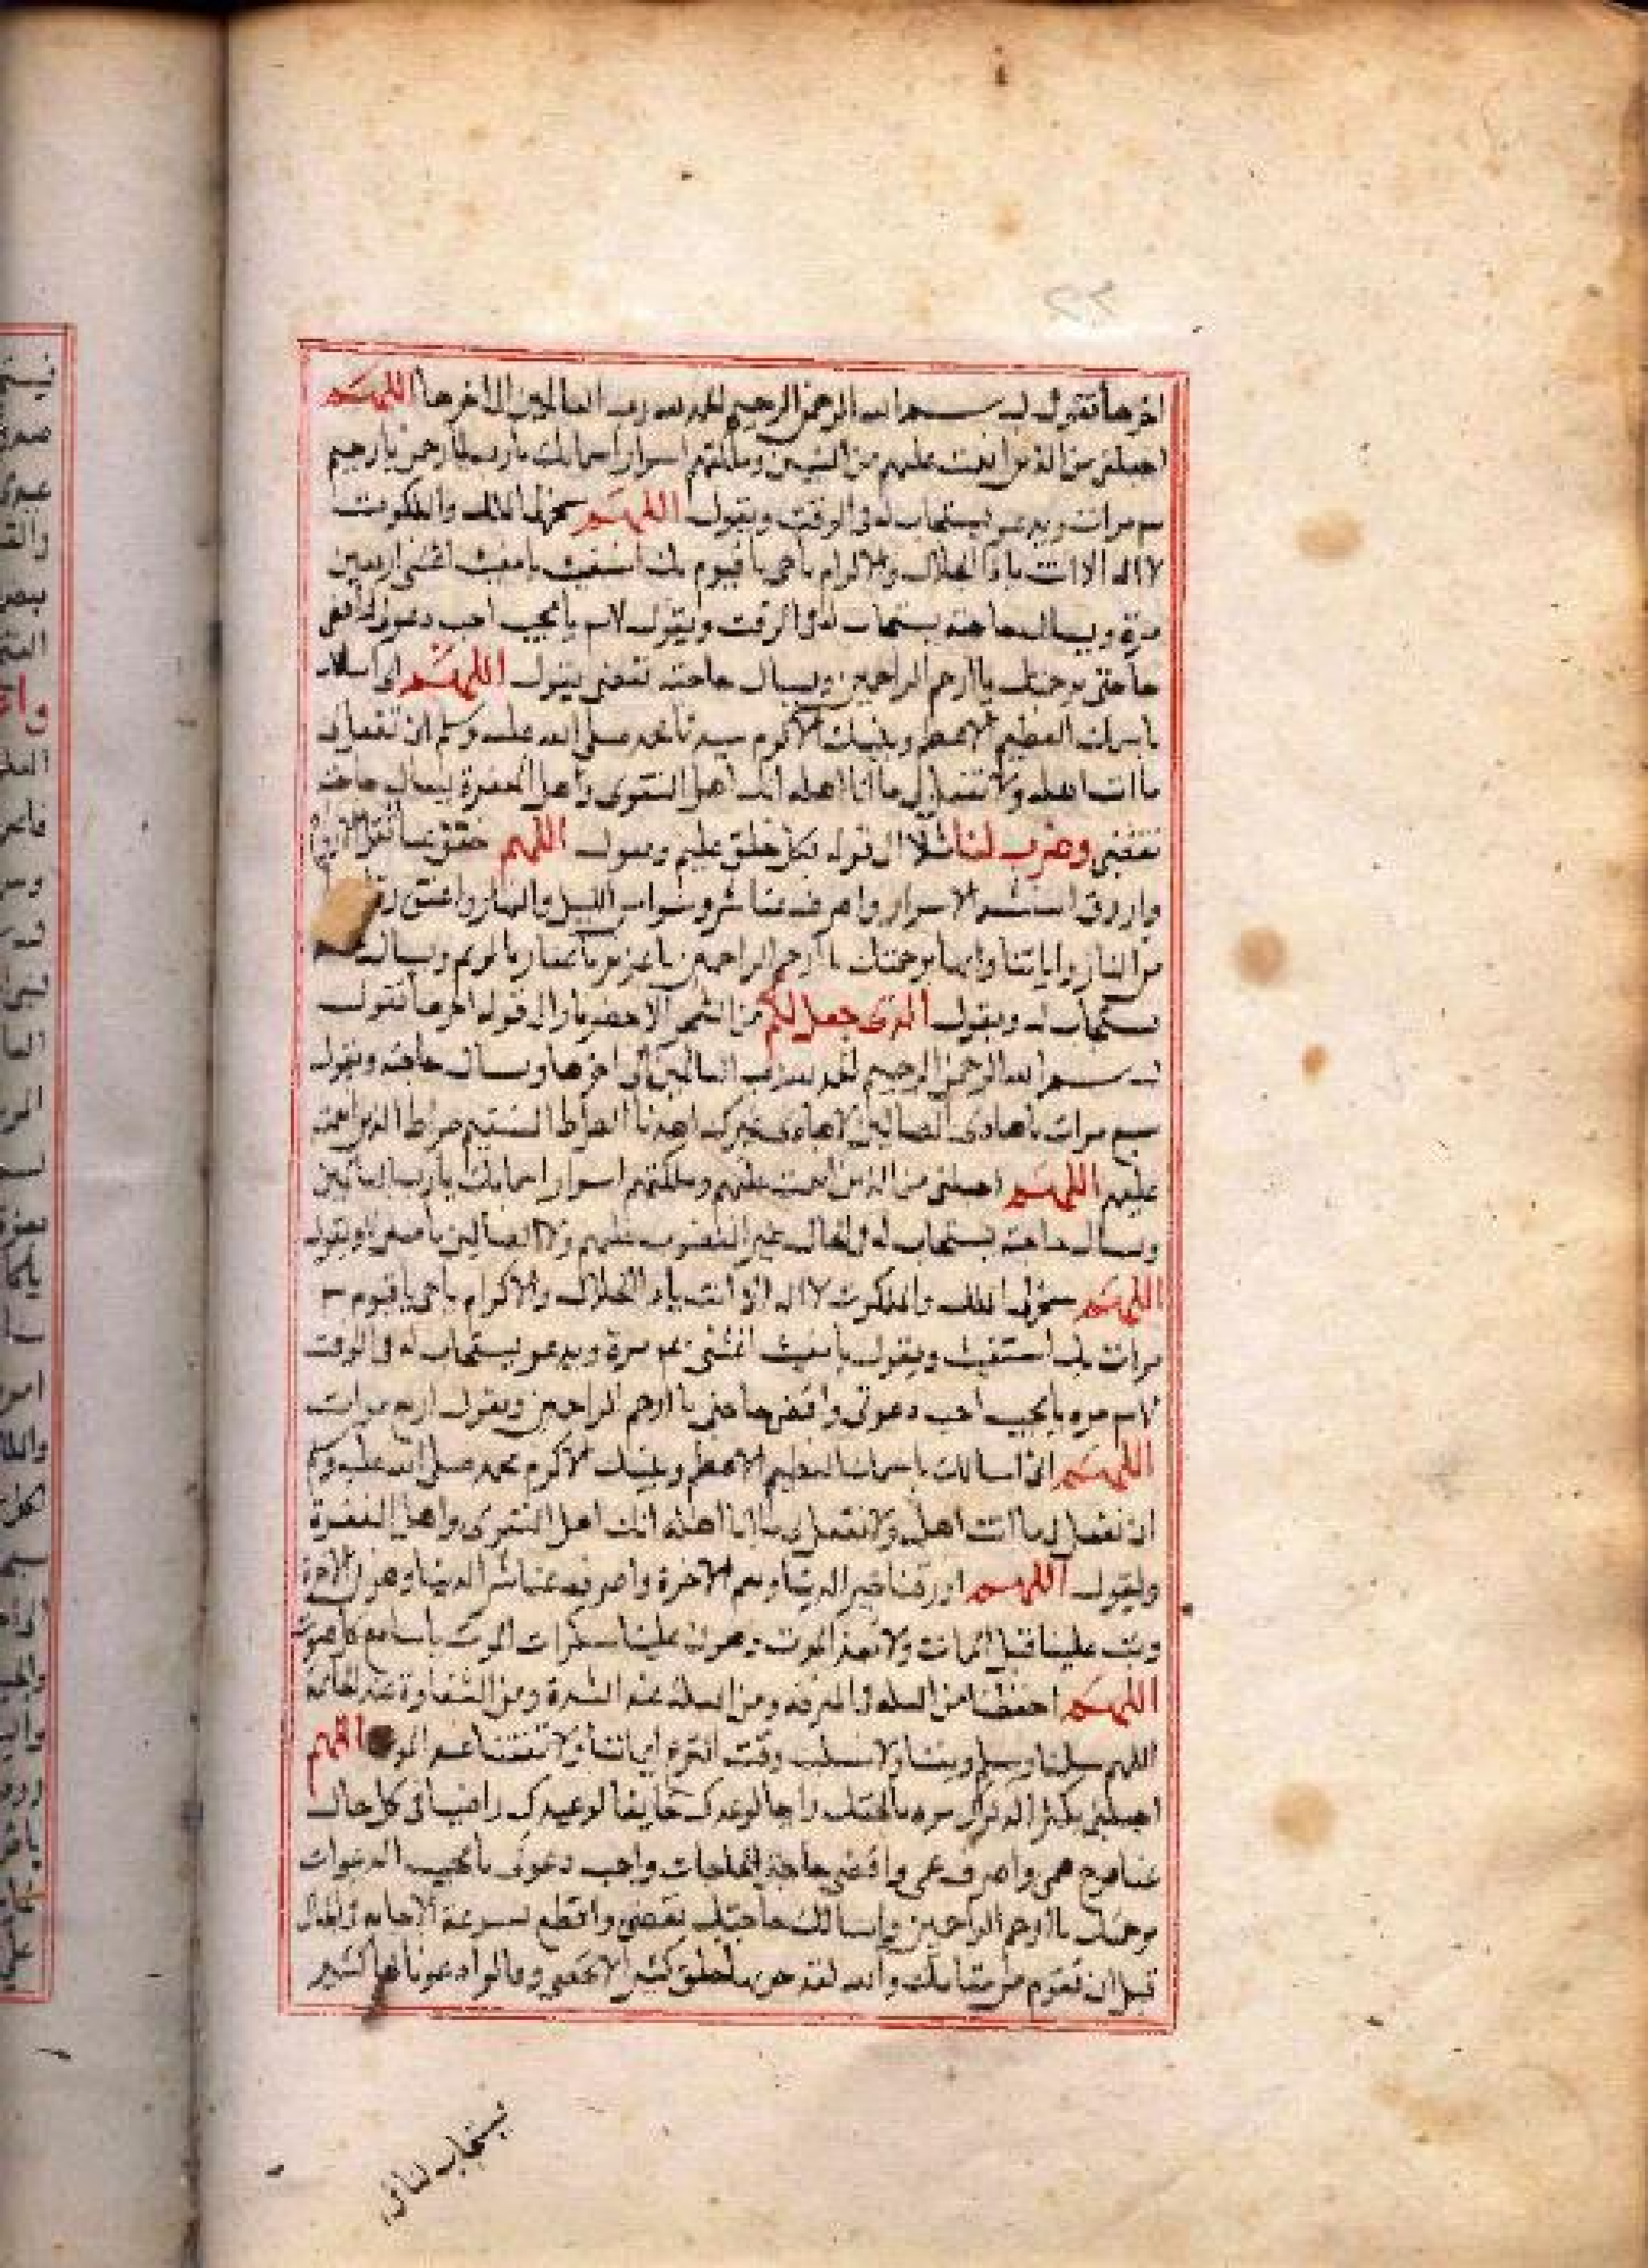 اخرها فتقول بسم الله الرحمن الرحيم الحمد لله رب العالمين الى اخرها اللهم
اجعلنى من الذين انعمت عليهم من النبيين وملكتهم اسرار اسمايك يارب يارحمن يارحيم
مرات ويدعو يستجاب له فى الوقت ويقول اللهم سخر لى الملك والملكوت
لااله الا انت ياذا الجلال والاكرام ياحى ياقيوم بك استغيث يامغيث اغثنى اربعين
مرة ويسال حاجته يستجاب له فى الوقت ويقول يامجيب اجب دعوتى واقض
حاجتى برحمتك ياارحم الراحمين ويسال حاجته تقضى يقول اللهم انى اسالك
باسمك العظيم الاعظم وبنبيك الاكرم سيدنا محمد صلى الله عليه وسلم ان تفعل لى
ماانت اهله ولا تفعل لى ماانا اهله انك اهل التقوى واهل المغفرة يسال حاجته
تقضى وضرب لنا مثلا الى قوله بكل خلق عليم ويقول اللهم خفف عنا ثقل الاوزار
وارزق الاسرار واصرف عنا شر الليل والنهار واعتق
من النار وابائنا وامهاتنا برحمتك ياارحم الراحمين ياعزيز ياغفار ياكريم ويسال
يستجاب له ويقول الذى جعل لكم من الشجر الاخضر نارا الى قوله اخرها تقول
بسم الله الرحمن الرحيم الحمد لله رب العالمين الى اخرها ويسال حاجته ويقول
سبع مرات ياهادى الضالين لاهادى غيرك اهدنا الصراط المستقيم صراط الذين انعمت
عليهم اللهم اجعلنى من الذين انعمت عليهم وملكتهم اسرار اسمايك يارب العالمين
ويسال حاجته يستجاب له فى الحال غير المغضوب عليهم ولا الضالين ويقول
اللهم سخر لى الملك والملكوت لااله الا انت ياذا الجلال والاكرام ياحى ياقيوم
مرات بك استغيث ويقول يامغيث اغثنى مرة ويدعو يستجاب له فى الوقت
مره يامجيب اجب دعوتى واقض حاجتى ياارحم الراحمين ويقول اربع مرات
اللهم انى اسالك باسمك العظيم الاعظم وبنبيك الاكرم محمد صلى الله عليه وسلم
ان تفعل لى ماانت اهله ولا تفعل لى ماانا اهله انك اهل التقوى واهل المغفرة
ويقول اللهم ارزقنا خير الدنيا ونعيم الاخرة واصرف عنا شر الدنيا وهول الاخرة
وتب علينا قبل الممات الموت وهون علينا سكرات الموت ياسامع كل صوت
اللهم احفظنا من ومن عند الشدة ومن الشقاوة عند الخاتمة
اللهم سلمنا وسلم ديننا ولا تسلب وقت النزع ايماننا ولا تفتنا عند الموت اللهم
اجعلنى راجيا لوعدك خايفا لوعيدك راضيا فى كل حال
همى واصرف غمى واقض حاجتى الحاجات واجب دعوتى يامجيب الدعوات
برحمتك ياارحم الراحمين واسال حاجتك تقضى واقطع بسرعة الاجابه فى الحال
قبل ان تقوم من مقامك والله لقد كثير
يستجاب لنا فى